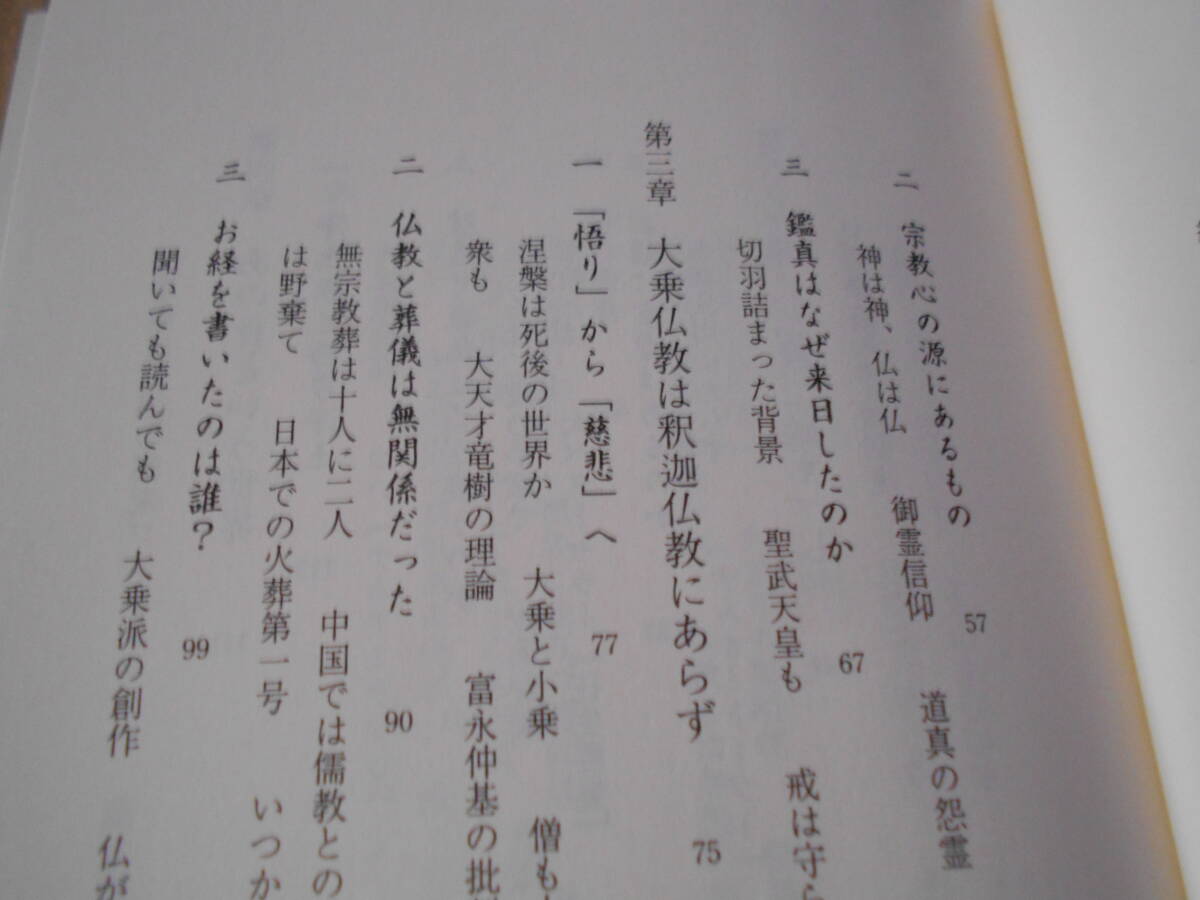 二　宗教心の源にあるもの　57
神は神、仏は仏　御霊信仰　道真の怨霊
三　鑑真はなぜ来日したのか　67
切羽詰まった背景　聖武天皇も　戒は守ら
第三章　大乗仏教は釈迦仏教にあらず　75
一　「悟り」から「慈悲」へ　77
涅槃は死後の世界か　大乗と小乗　僧も
衆も　大天才竜樹の理論　富永仲基の批
二　仏教と葬儀は無関係だった　90
無宗教葬は十人に二人　中国では儒教との
は野棄て　日本での火葬第一号　いつか
三　お経を書いたのは誰？　99
聞いても読んでも　大乗派の創作　仏が